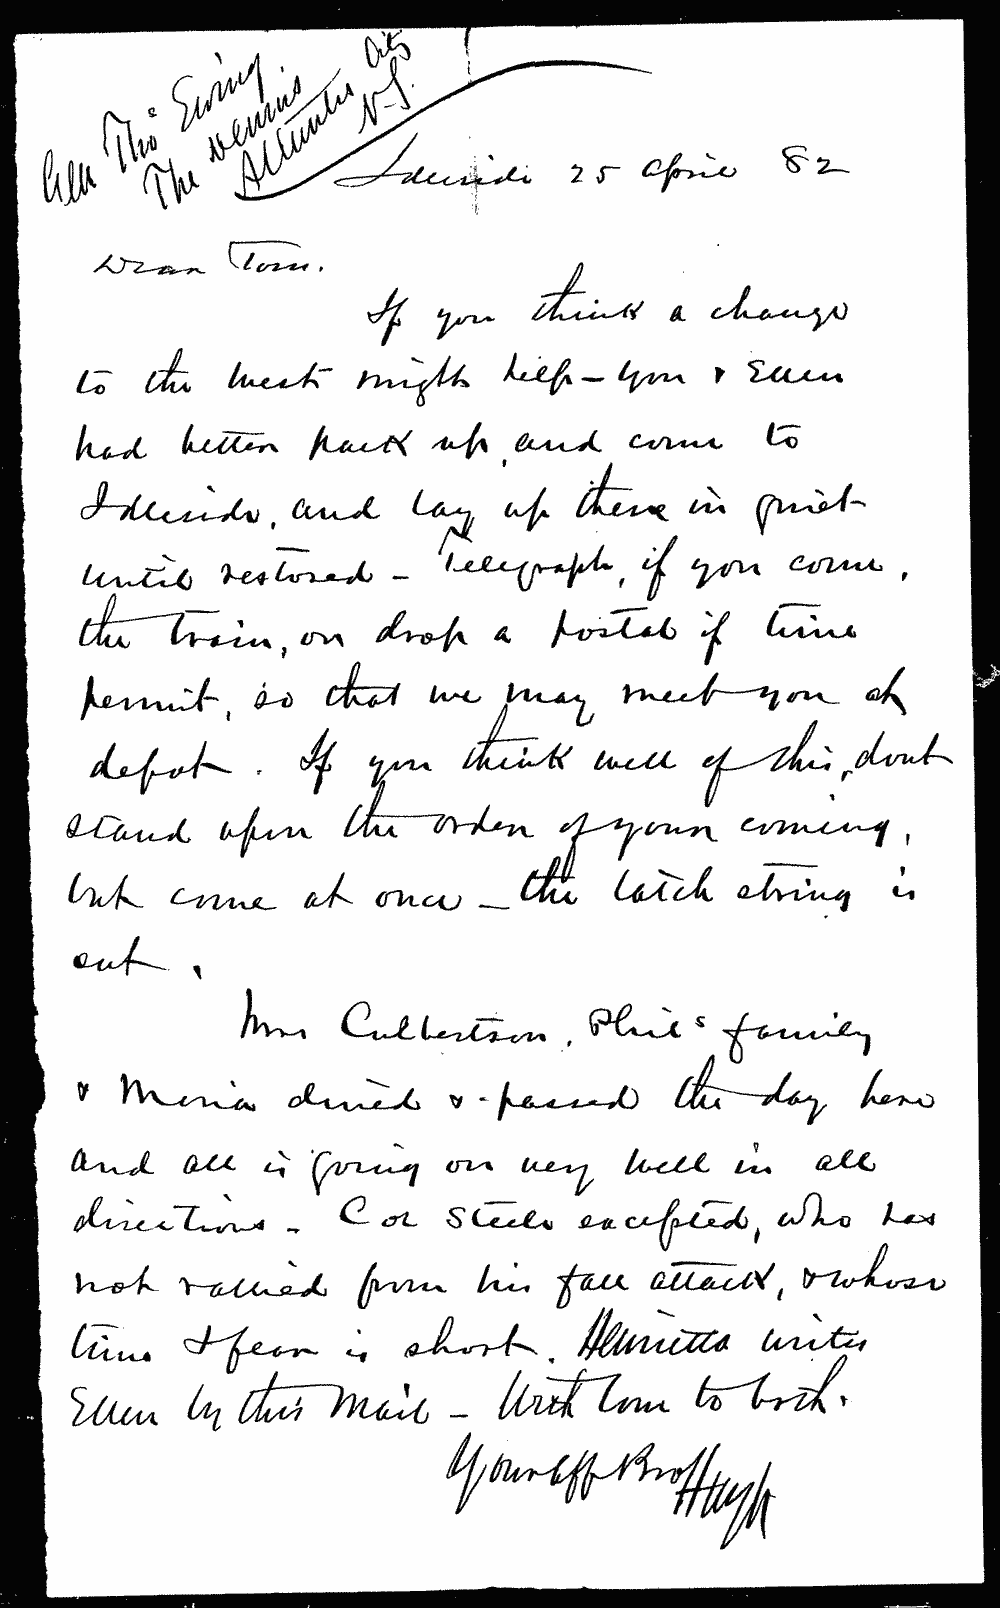 Gen Thos Ewing
The Dennis
Atlantic City
N.J.
Idleside 25 April 82
Dear Tom.
If you think a change
to the West might help - you & Ellen
had better pack up, and come to
Idleside, and lay up there in quiet
until restored - Telegraph, if you come,
the train, or drop a postal if time
permit, so that we may meet you at
depot. If you think well of this, dont
stand upon the order of your coming,
but come at once - the latch string is
out.
Mrs Culbertson, Phils family
& Maria dined & passed the day here
and all is going on very well in all
directions - Col Steele excepted, who has
not rallied from his fall attack, & whose
time I fear is short. Henrietta writes
Ellen by this Mail - With love to both.
Your Aff Bro Hugh